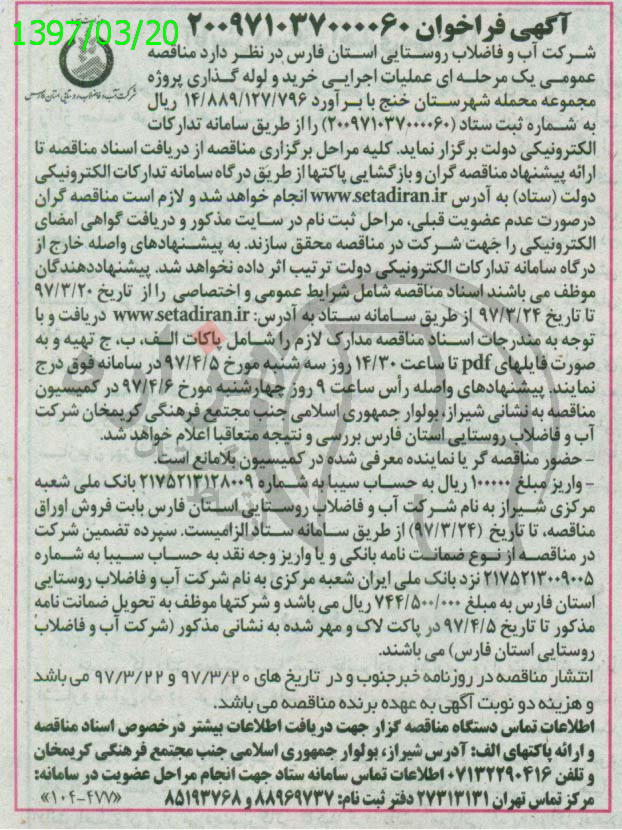 1397/03/20
آگهی فراخوان ۲۰۰۹۷۱۰۳۷۰۰۰۰۶۰
شرکت آب و فاضلاب روستایی استان فارس در نظر دارد مناقصه
عمومی یک مرحله ای عملیات اجرایی خرید و لوله گذاری پروژه
مجموعه محمله شهرستان خنج با برآورد ۱۴/۸۸۹/۱۲۷/۷۹۶ ریال
به شماره ثبت ستاد (۲۰۰۹۷۱۰۳۷۰۰۰۰۶۰) را از طریق سامانه تدارکات
شرکت آب و فاضلاب روستایی استان فارس
الکترونیکی دولت برگزار نماید. کلیه مراحل برگزاری مناقصه از دریافت اسناد مناقصه تا
ارائه پیشنهاد مناقصه گران و بازگشایی پاکتها از طریق درگاه سامانه تدارکات الکترونیکی
دولت (ستاد) به آدرس www.setadiran.ir انجام خواهد شد و لازم است مناقصه گران
درصورت عدم عضویت قبلی، مراحل ثبت نام در سایت مذکور و دریافت گواهی امضای
الکترونیکی را جهت شرکت در مناقصه محقق سازند. به پیشنهادهای واصله خارج از
درگاه سامانه تدارکات الکترونیکی دولت ترتیب اثر داده نخواهد شد. پیشنهاددهندگان
موظف می باشند اسناد مناقصه شامل شرایط عمومی و اختصاصی را از تاریخ ۹۷/۳/۲۰
تا تاریخ ۹۷/۳/۲۴ از طریق سامانه ستاد به آدرس: www.setadiran.ir دریافت و با
توجه به مندرجات اسناد مناقصه مدارک لازم را شامل پاکات الف، ب، ج تهیه و به
صورت فایلهای pdf تا ساعت ۱۴/۳۰ روز سه شنبه مورخ ۹۷/۴/۵ در سامانه فوق درج
نمایند. پیشنهادهای واصله رأس ساعت ۹ روز چهارشنبه مورخ ۹۷/۴/۶ در کمیسیون
مناقصه به نشانی شیراز، بولوار جمهوری اسلامی جنب مجتمع فرهنگی کریمخان شرکت
آب و فاضلاب روستایی استان فارس بررسی و نتیجه متعاقبا اعلام خواهد شد.
- حضور مناقصه گر یا نماینده معرفی شده در کمیسیون بلامانع است.
- واریز مبلغ ۱۰۰۰۰۰ ریال به حساب سیبا به شماره ۲۱۷۵۲۱۳۱۲۸۰۰۹ بانک ملی شعبه
مرکزی شیراز به نام شرکت آب و فاضلاب روستایی استان فارس بابت فروش اوراق
مناقصه، تا تاریخ (۹۷/۳/۲۴) از طریق سامانه ستاد الزامیست. سپرده تضمین شرکت
در مناقصه از نوع ضمانت نامه بانکی و یا واریز وجه نقد به حساب سیبا به شماره
۲۱۷۵۲۱۳۰۰۹۰۰۵ نزد بانک ملی ایران شعبه مرکزی به نام شرکت آب و فاضلاب روستایی
استان فارس به مبلغ ۷۴۴/۵۰۰/۰۰۰ ریال می باشد و شرکتها موظف به تحویل ضمانت نامه
مذکور تا تاریخ ۹۷/۴/۵ در پاکت لاک و مهر شده به نشانی مذکور (شرکت آب و فاضلاب
روستایی استان فارس) می باشند.
انتشار مناقصه در روزنامه خبرجنوب و در تاریخ های ۹۷/۳/۲۰ و ۹۷/۳/۲۲ می باشد
و هزینه دو نوبت آگهی به عهده برنده مناقصه می باشد.
اطلاعات تماس دستگاه مناقصه گزار جهت دریافت اطلاعات بیشتر درخصوص اسناد مناقصه
و ارائه پاکتهای الف: آدرس شیراز، بولوار جمهوری اسلامی جنب مجتمع فرهنگی کریمخان
و تلفن ۰۷۱۳۲۲۹۰۴۱۶ اطلاعات تماس سامانه ستاد جهت انجام مراحل عضویت در سامانه:
مرکز تماس تهران ۲۷۳۱۳۱۳۱ دفتر ثبت نام: ۸۸۹۶۹۷۳۷ و ۸۵۱۹۳۷۶۸
«۱۰۴-۴۷۷»